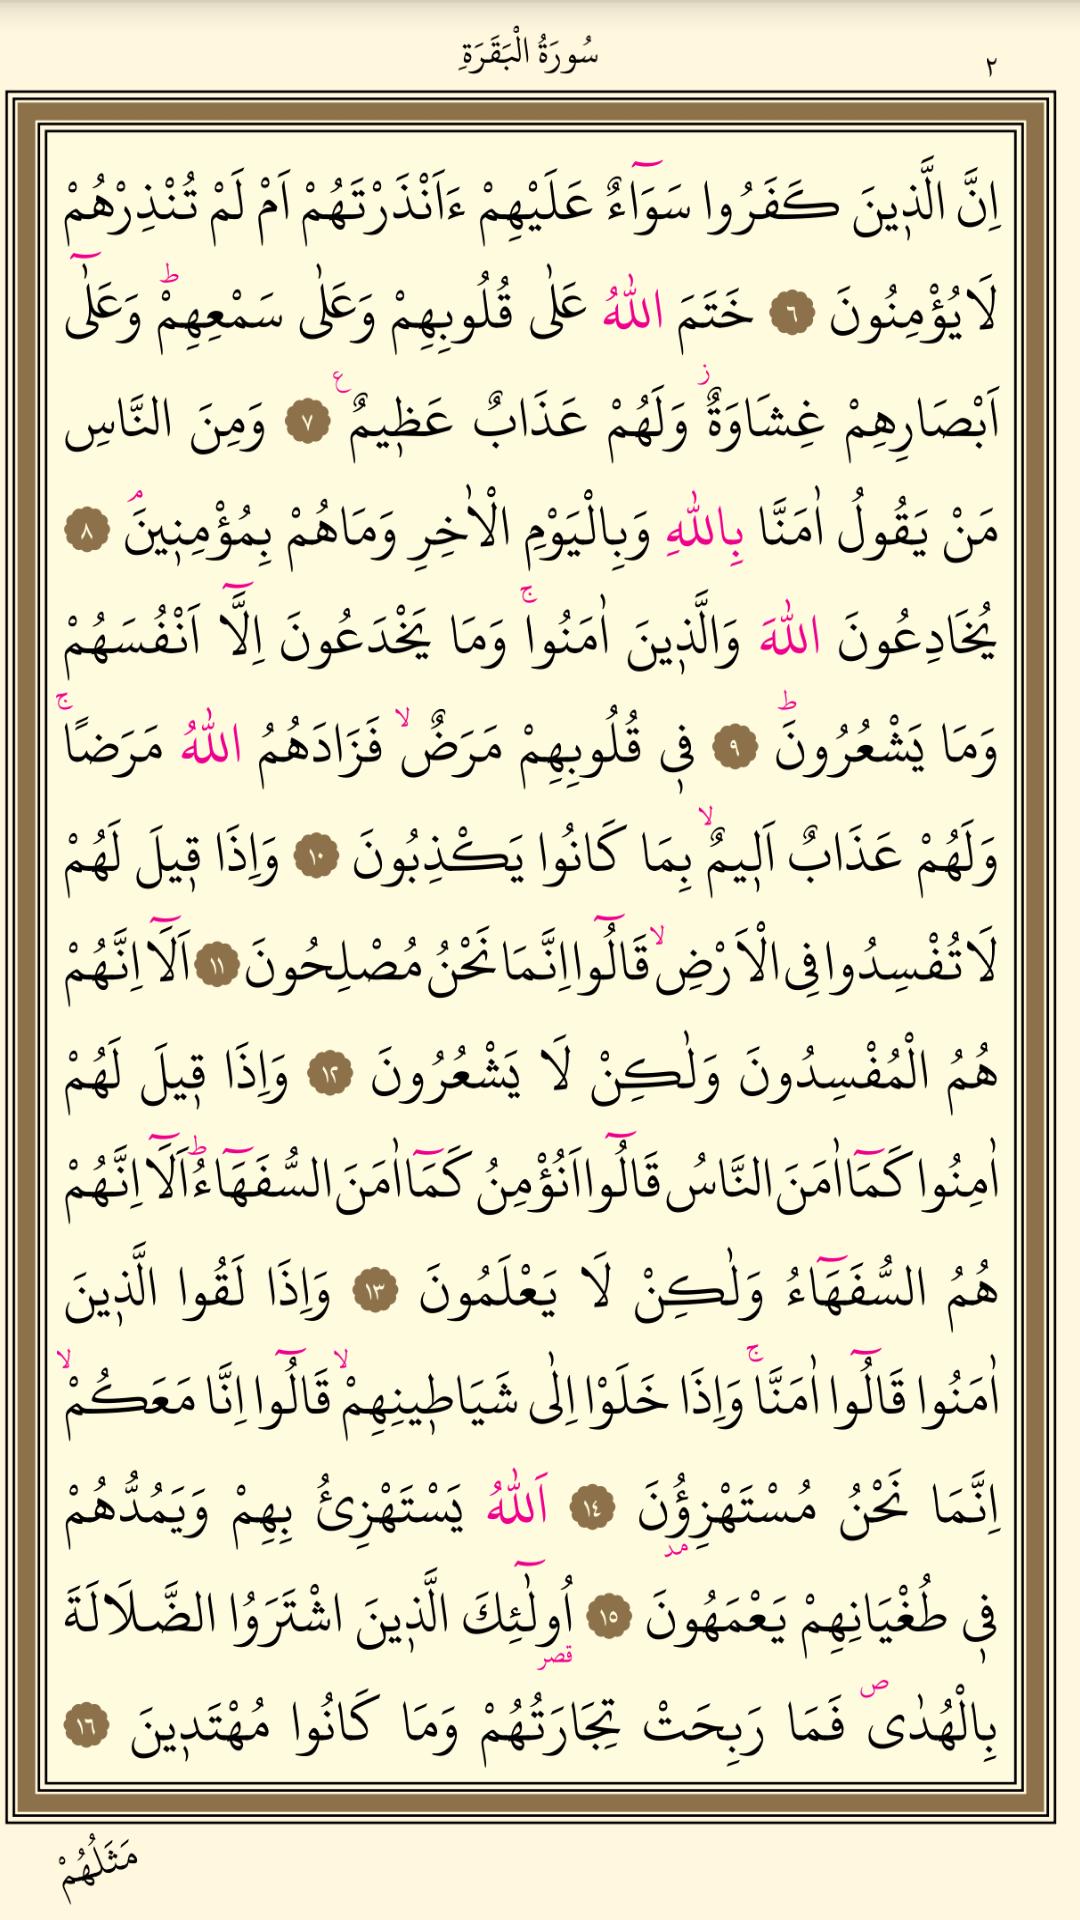 ٢
سُورَةُ الْبَقَرَةِ
اِنَّ الَّذٖينَ كَفَرُوا سَوَٓاءٌ عَلَيْهِمْ ءَاَنْذَرْتَهُمْ اَمْ لَمْ تُنْذِرْهُمْ
لَا يُؤْمِنُونَ ٦ خَتَمَ اللّٰهُ عَلٰى قُلُوبِهِمْ وَعَلٰى سَمْعِهِمْؕ وَعَلٰٓى
اَبْصَارِهِمْ غِشَاوَةٌؗ وَلَهُمْ عَذَابٌ عَظٖيمٌࣖ ٧ وَمِنَ النَّاسِ
مَنْ يَقُولُ اٰمَنَّا بِاللّٰهِ وَبِالْيَوْمِ الْاٰخِرِ وَمَا هُمْ بِمُؤْمِنٖينَۘ ٨
يُخَادِعُونَ اللّٰهَ وَالَّذٖينَ اٰمَنُواۚ وَمَا يَخْدَعُونَ اِلَّٓا اَنْفُسَهُمْ
وَمَا يَشْعُرُونَؕ ٩ فٖى قُلُوبِهِمْ مَرَضٌۙ فَزَادَهُمُ اللّٰهُ مَرَضًاۚ
وَلَهُمْ عَذَابٌ اَلٖيمٌۙ بِمَا كَانُوا يَكْذِبُونَ ١٠ وَاِذَا قٖيلَ لَهُمْ
لَا تُفْسِدُوا فِى الْاَرْضِۙ قَالُٓوا اِنَّمَا نَحْنُ مُصْلِحُونَ ١١ اَلَٓا اِنَّهُمْ
هُمُ الْمُفْسِدُونَ وَلٰكِنْ لَا يَشْعُرُونَ ١٢ وَاِذَا قٖيلَ لَهُمْ
اٰمِنُوا كَمَٓا اٰمَنَ النَّاسُ قَالُٓوا اَنُؤْمِنُ كَمَٓا اٰمَنَ السُّفَهَٓاءُؕ اَلَٓا اِنَّهُمْ
هُمُ السُّفَهَٓاءُ وَلٰكِنْ لَا يَعْلَمُونَ ١٣ وَاِذَا لَقُوا الَّذٖينَ
اٰمَنُوا قَالُٓوا اٰمَنَّاۚ وَاِذَا خَلَوْا اِلٰى شَيَاطٖينِهِمْۙ قَالُٓوا اِنَّا مَعَكُمْۙ
اِنَّمَا نَحْنُ مُسْتَهْزِؤُ۫نَ ١٤ اَللّٰهُ يَسْتَهْزِئُ بِهِمْ وَيَمُدُّهُمْ
مد
فٖى طُغْيَانِهِمْ يَعْمَهُونَ ١٥ اُولٰٓئِكَ الَّذٖينَ اشْتَرَوُا الضَّلَالَةَ
قصر
بِالْهُدٰىࣕ فَمَا رَبِحَتْ تِجَارَتُهُمْ وَمَا كَانُوا مُهْتَدٖينَ ١٦
مَثَلُهُمْ